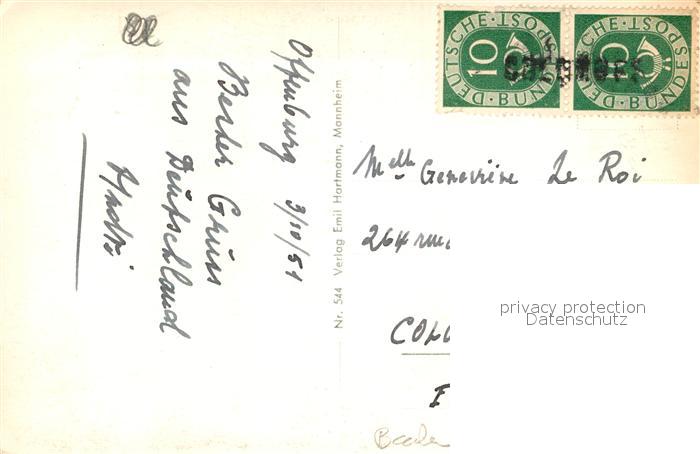 Offenburg 3/10/51
Bester Gruss
aus Deutschland
Nr. 544 Verlag Emil Hartmann, Mannheim
DEUTSCHE · POST · BUNDESPOST
10
DEUTSCHE · POST · BUNDESPOST
10
Melle Geneviève Le Roi
264 rue
COLO
privacy protection
Datenschutz